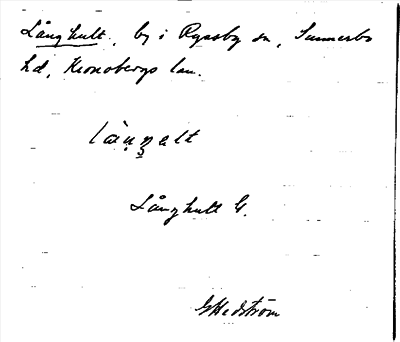 Långhult, by i Ryssby sn, Sunnerbo
hd, Kronobergs län.
Långhult G.
GHedström